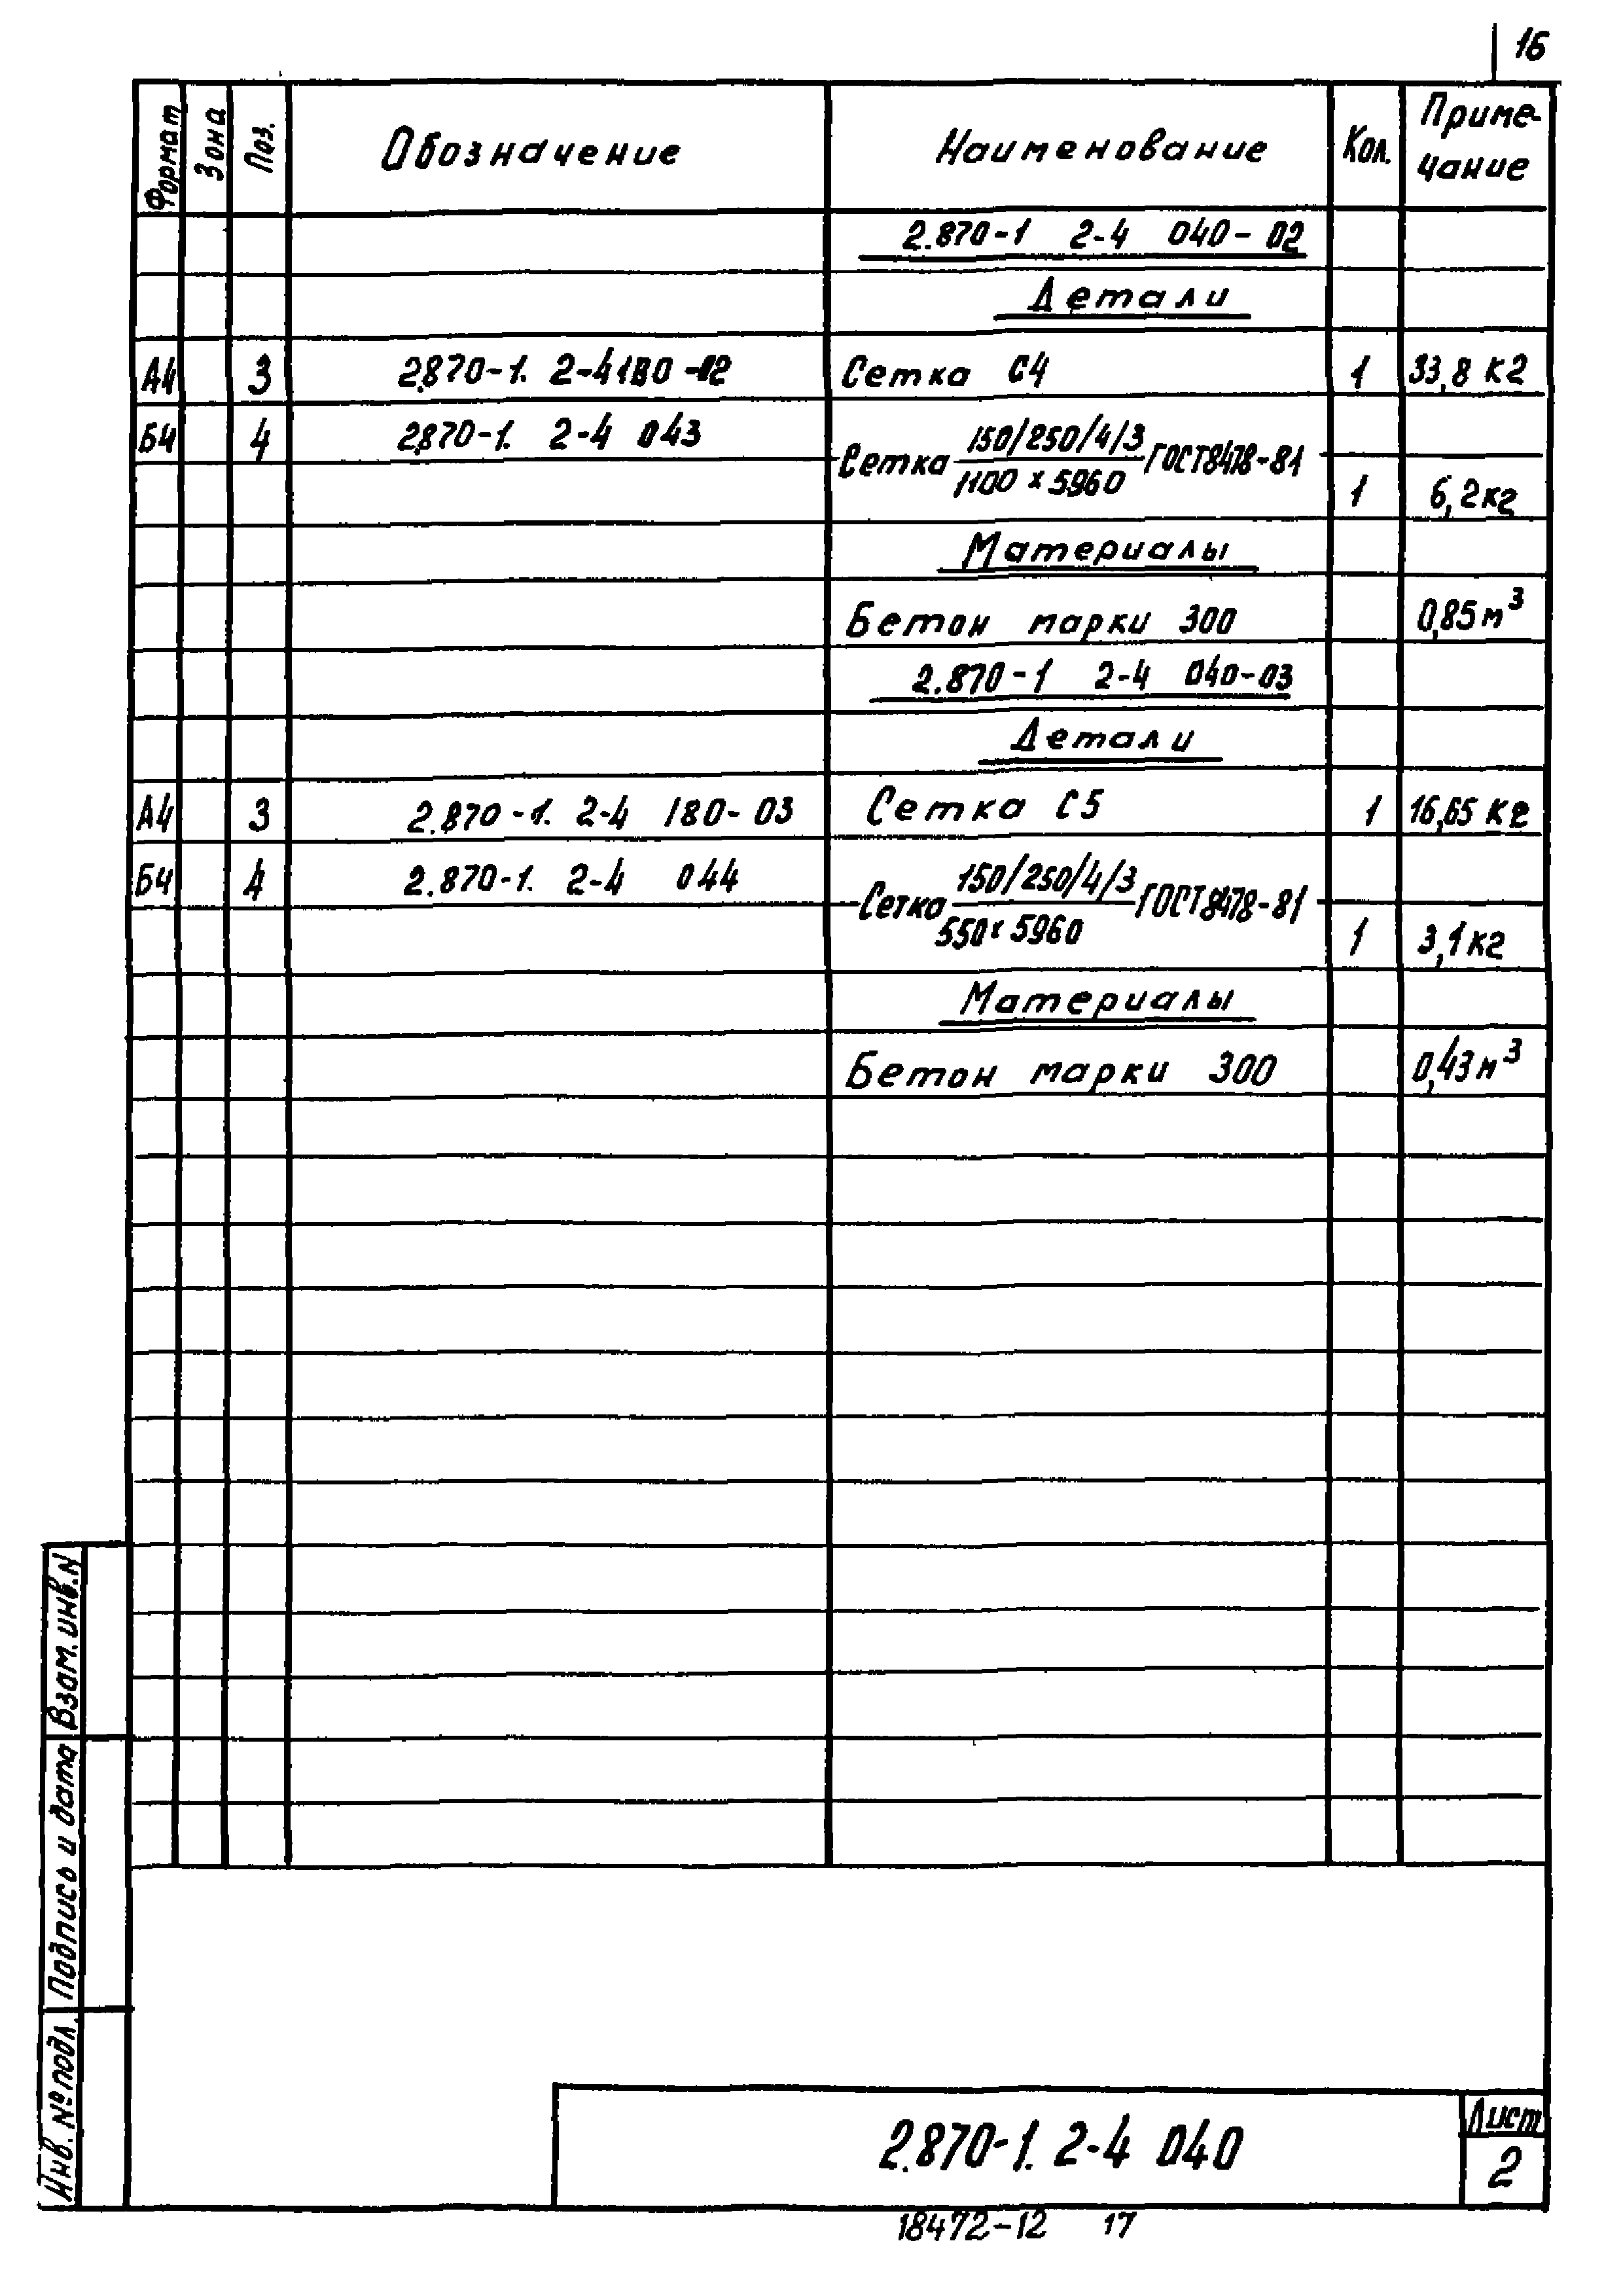 16
Формат Зона Поз. Обозначение Наименование Кол. Приме-
чание
2.870-1 2-4 040-02
Детали
А4 3 2.870-1. 2-4 180-02 Сетка С4 1 33,8 кг
Б4 4 2.870-1. 2-4 043 Сетка 150/250/4/3 ГОСТ8478-81
1100 × 5960 1 6,2кг
Материалы
Бетон марки 300 0,85м³
2.870-1 2-4 040-03
Детали
А4 3 2.870-1. 2-4 180-03 Сетка С5 1 16,65 кг
Б4 4 2.870-1. 2-4 044 Сетка 150/250/4/3 ГОСТ8478-81
550×5960 1 3,1кг
Материалы
Бетон марки 300 0,43м³
Взам. инв. N
Подпись и дата
Инв. № подл.
2.870-1. 2-4 040
Лист
2
18472-12 17